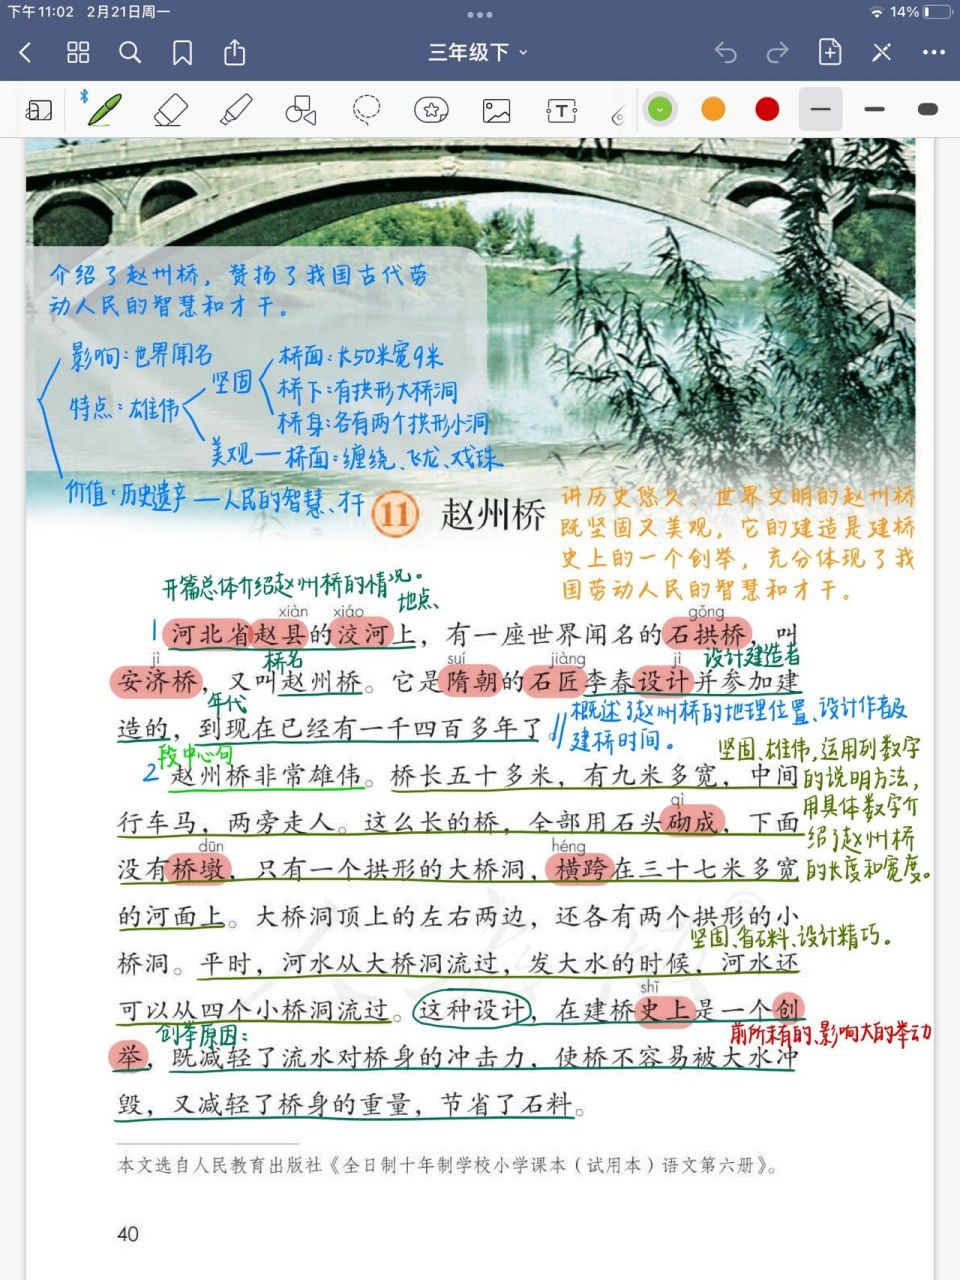 下午11:02 2月21日周一
14%
三年级下
介绍了赵州桥，赞扬了我国古代劳
动人民的智慧和才干。
影响：世界闻名
特点：雄伟
坚固
桥面：长50米宽9米
桥下：有拱形大桥洞
桥身：各有两个拱形小洞
美观—桥面：缠绕、飞龙、戏珠
价值：历史遗产—人民的智慧、才干
11 赵州桥
讲历史悠久、世界文明的赵州桥
既坚固又美观，它的建造是建桥
史上的一个创举，充分体现了我
国劳动人民的智慧和才干。
开篇总体介绍赵州桥的情况。
地点、
xiàn xiáo gǒng
1 河北省赵县的洨河上，有一座世界闻名的石拱桥，叫
桥名 设计建造者
jì suí jiàng jì
安济桥，又叫赵州桥。它是隋朝的石匠李春设计并参加建
年代
造的，到现在已经有一千四百多年了。
概述了赵州桥的地理位置、设计作者及
建桥时间。
段中心句
2 赵州桥非常雄伟。桥长五十多米，有九米多宽，中间
坚固、雄伟，运用列数字
的说明方法，
用具体数字介
绍了赵州桥
的长度和宽度。
qì
行车马，两旁走人。这么长的桥，全部用石头砌成，下面
dūn héng
没有桥墩，只有一个拱形的大桥洞，横跨在三十七米多宽
的河面上。大桥洞顶上的左右两边，还各有两个拱形的小
坚固、省石料、设计精巧。
桥洞。平时，河水从大桥洞流过，发大水的时候，河水还
shǐ
可以从四个小桥洞流过。这种设计，在建桥史上是一个创
创举原因：
前所未有的、影响大的举动
举，既减轻了流水对桥身的冲击力，使桥不容易被大水冲
毁，又减轻了桥身的重量，节省了石料。
本文选自人民教育出版社《全日制十年制学校小学课本（试用本）语文第六册》。
40